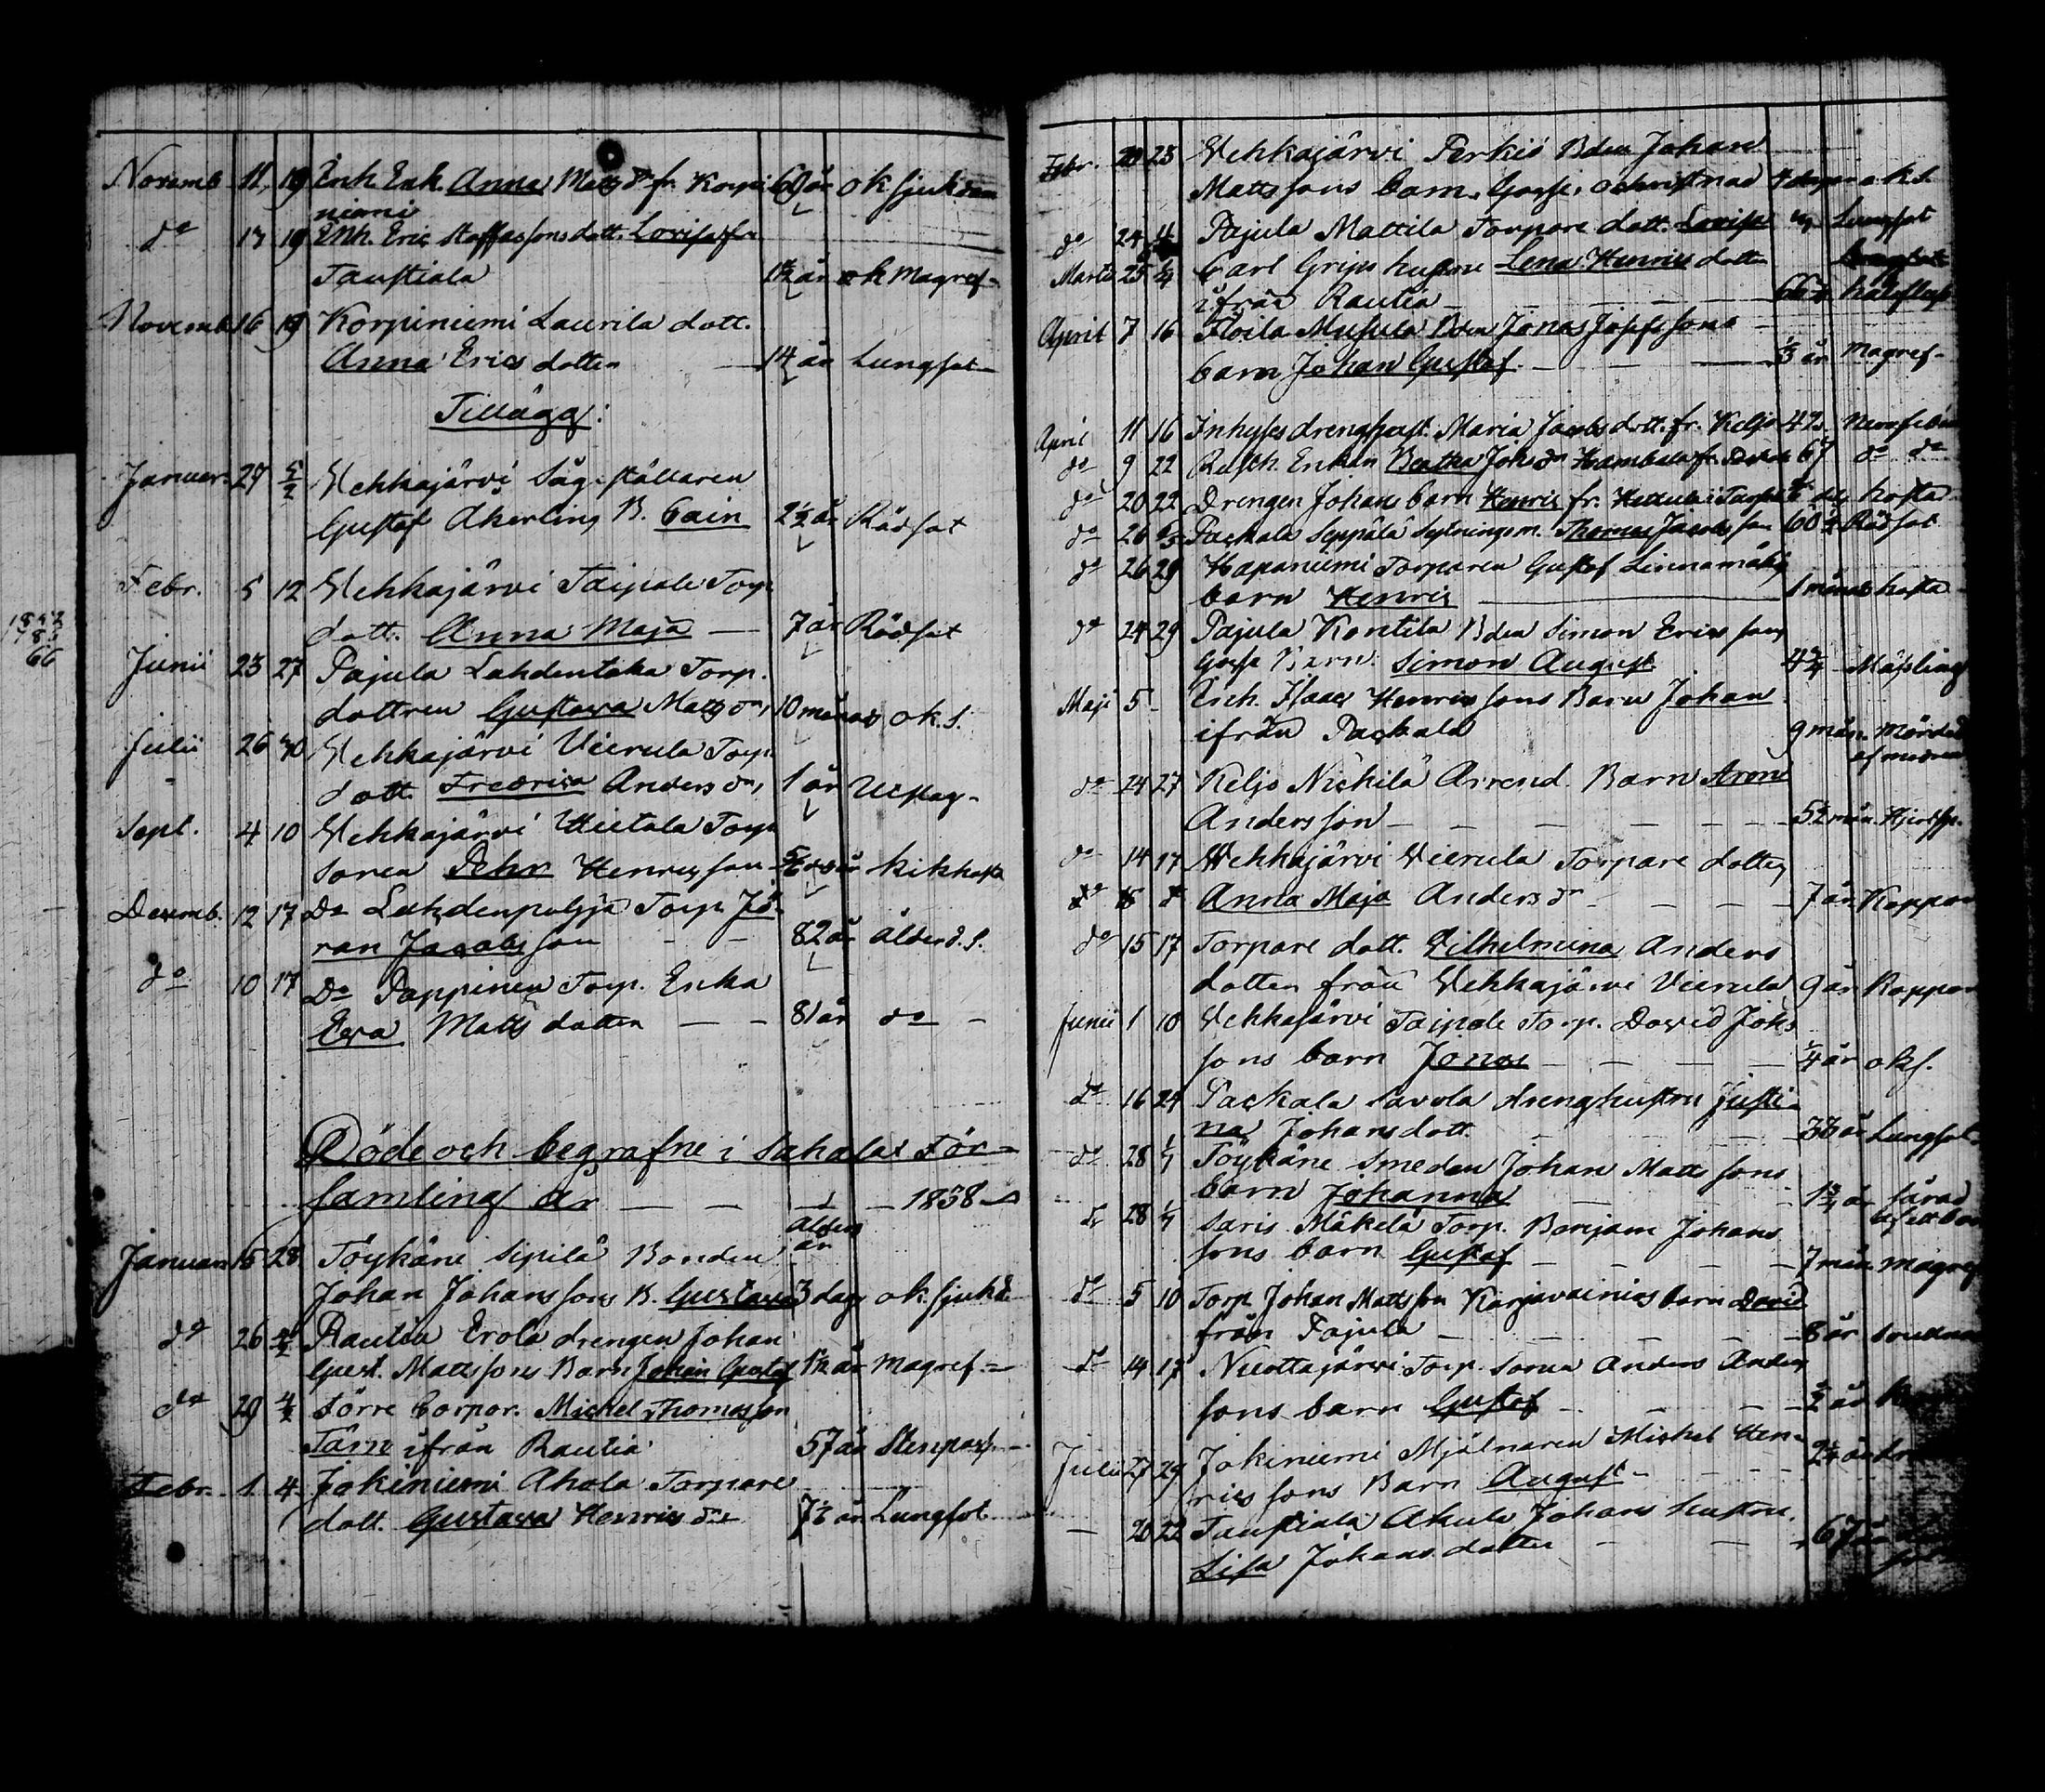 Novemb. 11 19 Inh. Enk. Anna Matsdr fr. Korpi 60 år ok sjukdom
niemi
do 17 19 Inh. Eric Staffassons dott. Lovisa fr
Taustiala 1½ år ok Magref-
Novemb. 16 19 Korpiniemi Laurila dott.
Anna Erics dotter 14 år Lungsot
Tillägg:
Januar. 27 5/2 Wehkajärvi Sågställaren
Gustaf Åkerling B. Cain 2½ år Rödsot
Febr. 5 12 Wehkajärvi Taipale Torp.
dott. Anna Maja 7 år Rödsot
1852
178
66
Junii 23 27 Pajula Lahdentaka Torp.
dottren Gustava Matsdr, 10 månad ok. S.
Julii 26 30 Wehkajärvi Vierula Torp.
dott. Fredrica Anders dr, 1 år
Sept. 4 10 Wehkajärvi Hietala Torp
sonen Pehr Henricsson kikhosta
Decemb. 12 17 Do Lahdenpohja Torp. Jö-
ran Jacobsson 82 år ålderd. S.
do 10 17 Do Pappinen Torp. Enka
Eva Matts dotter 81 år do
Döde och begrafne i Sahalax För-
samling år 1858
Ålder
år
Januar. 15 28 Töykäne Sipilä Bonden
Johan Johanssons B. Gustava 3 dagr ok. sjukd
do 26 Rautia Erola drengen Johan
Gust. Mattssons Barn Johan Gustaf 1½ år Magref
do 29 4/2 Förre Corpor. Michel Thomasson
Tärn ifrån Rautia 57 år Stenpass
Febr. 1 4 Jokiniemi Ahola Torpare
dott. Gustava Henricsdr 7½ år Lungsot
Febr. 20 25 Wehkajärvi Perkiö Bden Johan
Mattssons barn, Gosse, ochristnad 4 dagar o.k.S.
do 24 Pajula Mattila Torpare dott. Lovisa Lungsot
Martii 25 4/4 Carl Grips hustru Lena Henrics dotter
ifrån Rautia 66 hålsfluss
April 7 16 Floila Musula Bden Jonas Josefssons
barn Johan Gustaf 1/3 år Magref-
April 11 16 Inhyses drenghust. Maria Jacobsdott. fr. Keljo 42 Nervfeber
do 9 22 Rusth. Enkan Beatha Johsdr Hambala fr. 67 do do
do 20 22 Drengen Johans barn Henric fr. hosta
do 26 Packala Seppälä Sytningsm. Thomas Jacobsson 60½ Rödsot
do 26 29 Haponiemi Torparen Gustaf Linnamäkis
barn Henric 1 månad hosta
do 24 29 Pajula Kontila Bden Simon Ericssons
Gosse Barn Simon August 4¾ Mässling
Maji 5 Isaac Henricssons Barn Johan
ifrån Packala 9 mån. Mördad
af modren
do 24 27 Keljo Nickilä Arrend. Barn Aron
Andersson 5½ mån
do 14 17 Wehkajärvi Vierula Torpare dotter
Anna Maja Andersdr 7 år Koppor
do 15 17 Torpare dott. Wilhelmina Anders
dotter från Wehkajärvi Vierula 9 år Koppor
Junii 1 10 Wehkajärvi Taipale Torp. David Johs
sons barn Jonas ¼ år okS.
do 16 24 Packala Savola drenghustru Justi-
na Johansdott. 33 år Lungsot
do 28 1/7 Töykäne Smeden Johan Matssons
barn Johanna 1¾ år
do 28 1/7 Saris Mäkelä Torp. Benjam Johans
sons barn Gustaf 7 mån Magref
do 5 10 Torp. Johan Mattsson Karjavainios barn David
från Pajula 8 år
do 14 17 Nuottajärvi Torp. Sonen Anders Anders
sons barn Gustaf ½ år
Julii 27 29 Jokiniemi Mjölnaren Michel Hen-
rics sons Barn August 2¼ år
20 22 Taustiala Akula Johans hustru
Lisa Johans dotter 67 år